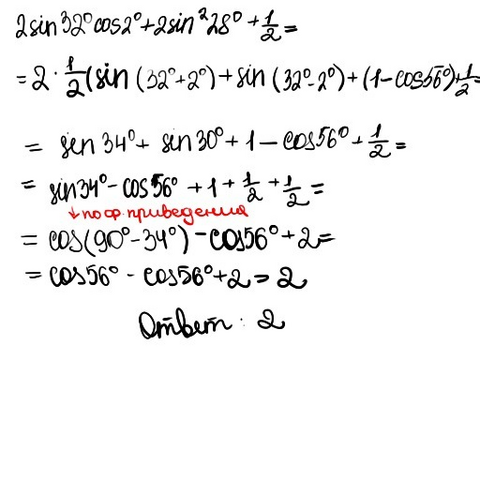 2sin32°cos2°+2sin²28°+1/2=
=2·1/2(sin(32°+2°)+sin(32°-2°)+(1-cos56°)+1/2=
= sen34°+ sin30°+1-cos56°+1/2=
= sin34°-cos56°+1+1/2+1/2=
↓по ф. приведения
= cos(90°-34°)-cos56°+2=
= cos56°-cos56°+2=2
Ответ: 2